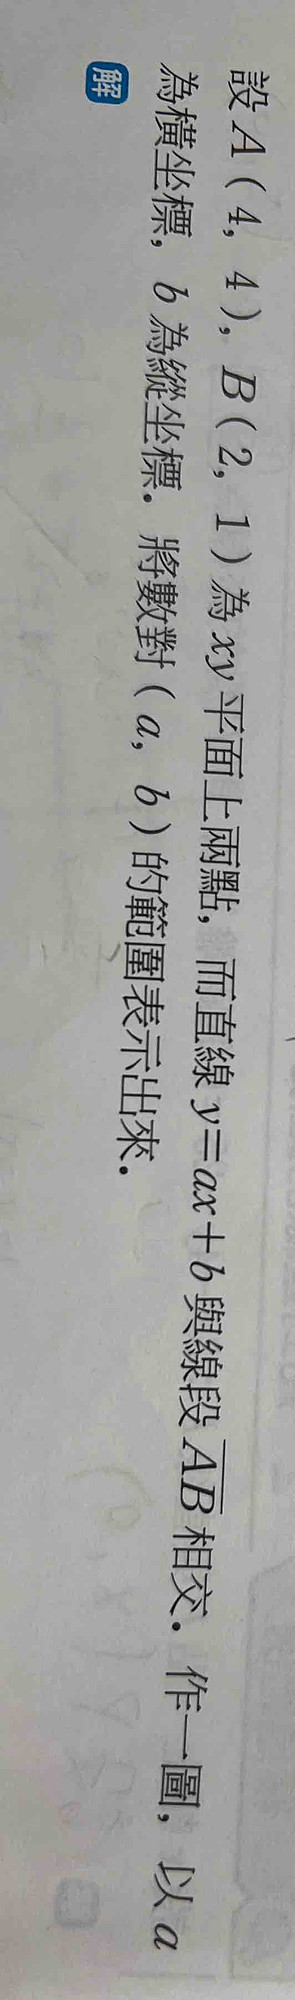 設A(4, 4), B(2, 1)為xy平面上兩點, 而直線y=ax+b與線段AB相交. 作一圖, 以a
為橫坐標, b為縱坐標. 將數對(a, b)的範圍表示出來.
解